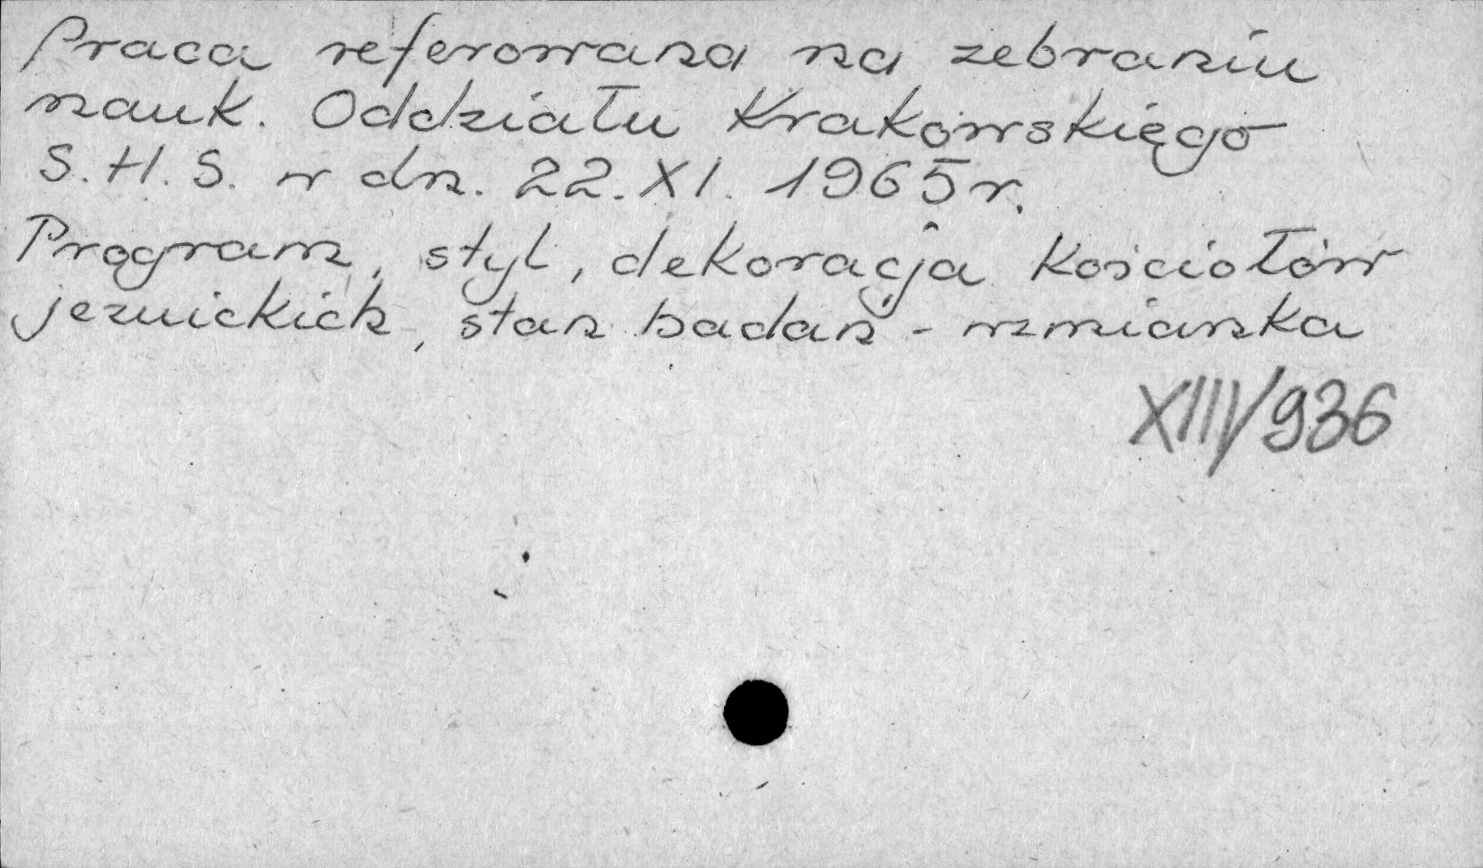 Praca referowana na zebraniu
nauk. Oddziału Krakowskiego
S.H.S. w dn. 22.XI. 1965 r.
Program, styl, dekoracja kościołów
jezuickich, stan badań - wzmianka
XIII/936